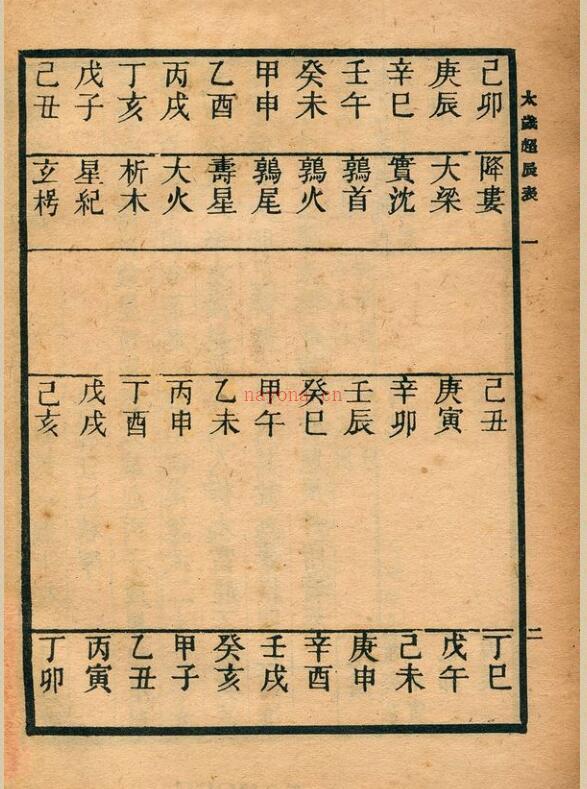 太歲超辰表 一 二
己卯 降婁 己丑 丁巳
庚辰 大梁 庚寅 戊午
辛巳 實沈 辛卯 己未
壬午 鶉首 壬辰 庚申
癸未 鶉火 癸巳 辛酉
甲申 鶉尾 甲午 壬戌
乙酉 壽星 乙未 癸亥
丙戌 大火 丙申 甲子
丁亥 析木 丁酉 乙丑
戊子 星紀 戊戌 丙寅
己丑 玄枵 己亥 丁卯
nayona.cn